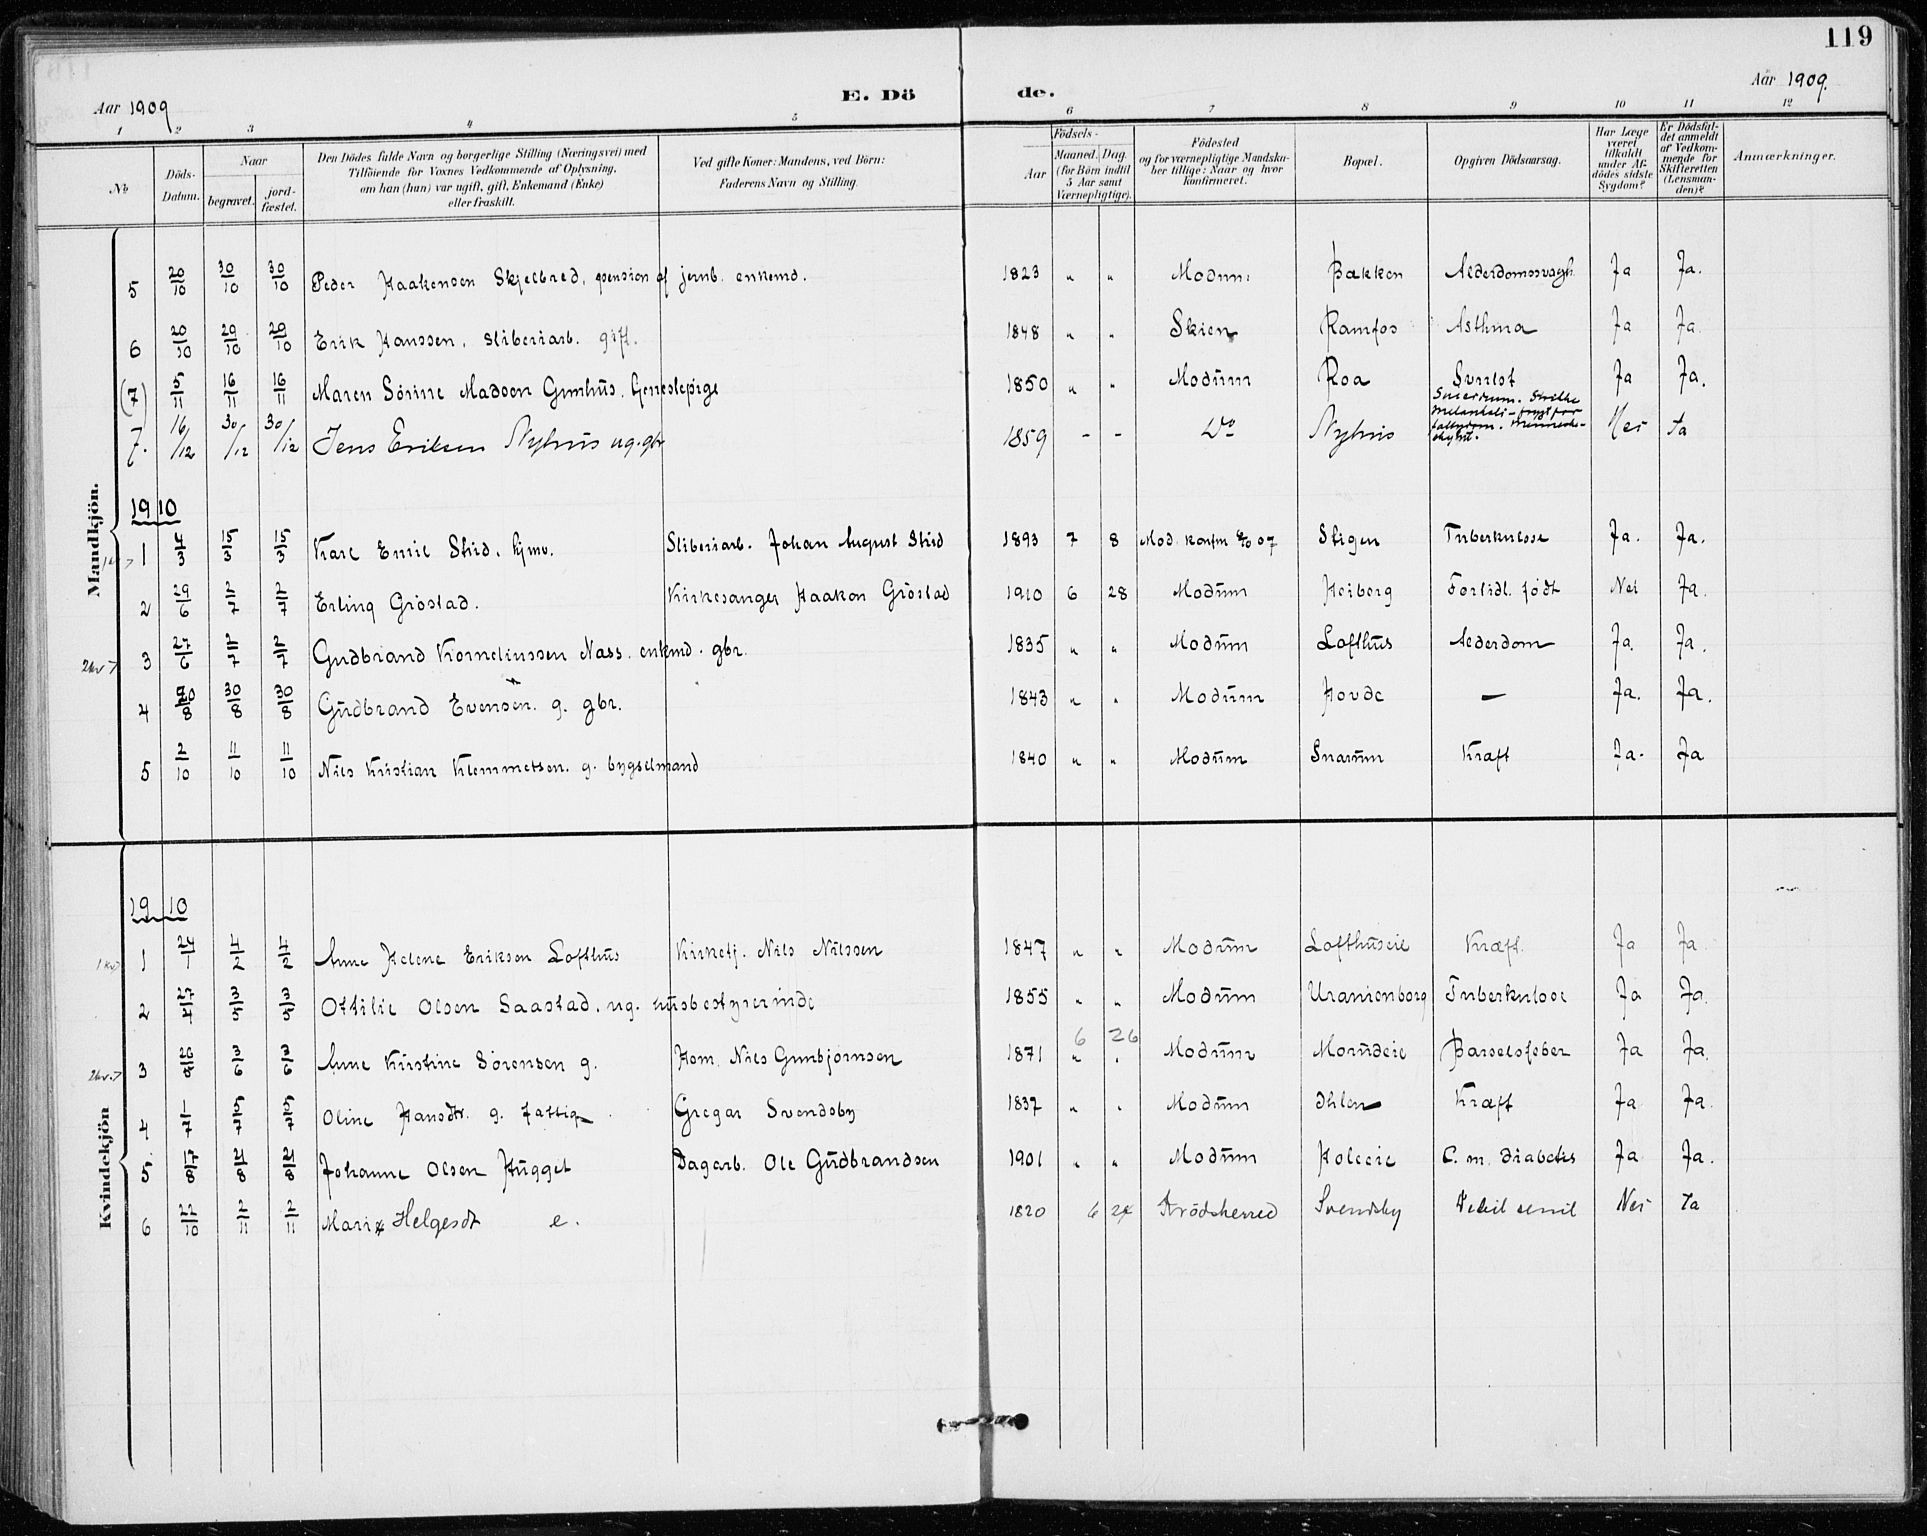 119
Aar 1909
E. Dö de.
Aar 1909.
1 2 3 4 5 6 7 8 9 10 11 12
No
Döds-Datum.
Naar
begravet.
jord-fæstet.
Den Dödes fulde Navn og borgerlige Stilling (Næringsvei) med
Tilföiende for Voxnes Vedkommende af Oplysning,
om han (hun) var ugift, gift, Enkemand (Enke)
eller fraskilt.
Ved gifte Koner: Mandens, ved Börn:
Faderens Navn og Stilling.
Födsels-
Aar
Maaned. Dag.
(for Börn indtil
5 Aar samt
Værnepligtige).
Födested
og for værnepligtige Mandska-
ber tillige: Naar og hvor
konfirmeret.
Bopæl.
Opgiven Dödsaarsag.
Har Læge
været
tilkaldt
under Af-
dödes sidste
Sygdom?
Er Dödsfal-
det anmeldt
af Vedkom-
mende for
Skifteretten
(Lensman-
den)?
Anmærkninger.
Mandkjön.
5 20/10 30/10 30/10 Peder Haakensen Skjelbred, pension af jernb. enkemd. 1823 " " Modum Bakken Alderdomssvagh. Ja Ja.
6 20/10 29/10 29/10 Erik Hanssen, sliberiarb. gift. 1848 " " Skien Ramfos Asthma Ja Ja.
(7) 5/11 16/11 16/11 Maren Sörine Madsen Gunhus. 1850 " " Modum Roa Ja Ja.
7. 16/12 30/12 30/12 Jens Eriksen Nyhus ug. gbr 1859 - - Do Nyhus Nei Ja
1910
1 15/3 15/3 Karl Emil Stid, hjmv. Sliberiarb. Johan August Stid 1893 7 8 Mod. konfm 07 Stigen Tuberkulose Ja. Ja.
2 29/6 2/7 2/7 Erling Gröstad. Kirkesanger Haakon Gröstad 1910 6 28 Modum Heiberg Fortidl. födt Nei Ja.
3 27/6 2/7 2/7 Gudbrand Korneliussen Nass. enkmd. gbr. 1835 " " Modum Lofthus Alderdom Ja. Ja.
4 30/8 30/8 Gudbrand Evensen. g. gbr. 1843 " " Modum Hovde — Ja. Ja.
5 2/10 11/10 11/10 Nils Kristian Klemmetsen. g. bygselmand 1840 " " Modum Snarum Kræft Ja. Ja
Kvindekjön
1910
1 24/1 4/2 4/2 Anne Helene Eriksen Lofthus Kirketj. Nils Nilssen 1847 " " Modum Lofthuseie Kræft. Ja Ja
2 27/4 3/5 3/5 Ottilie Olsen Saastad. ug. husbestyrerinde 1855 " " Modum Uranienborg Tuberkulose Ja Ja.
6 26
3 3/6 3/6 Anne Kirstine Sörensen g. Hem. Nils Gunbjörnsen 1871 " " Modum Morudeie Barselsfeber Ja Ja.
4 1/7 5/7 5/7 Oline Hansdtr. g. fattig Gregar Svendsby 1837 " " Modum Ihlen Kræft Ja Ja.
5 17/8 21/8 21/8 Johanne Olsen Hugget Dagarb. Ole Gudbrandsen 1901 " " Modum Holeeie C. m. diabetis Ja Ja.
6 22/10 2/11 2/11 Mari Helgesdt e. 1820 6 24 Krödsherred Svendsby Debil senil Nei Ja